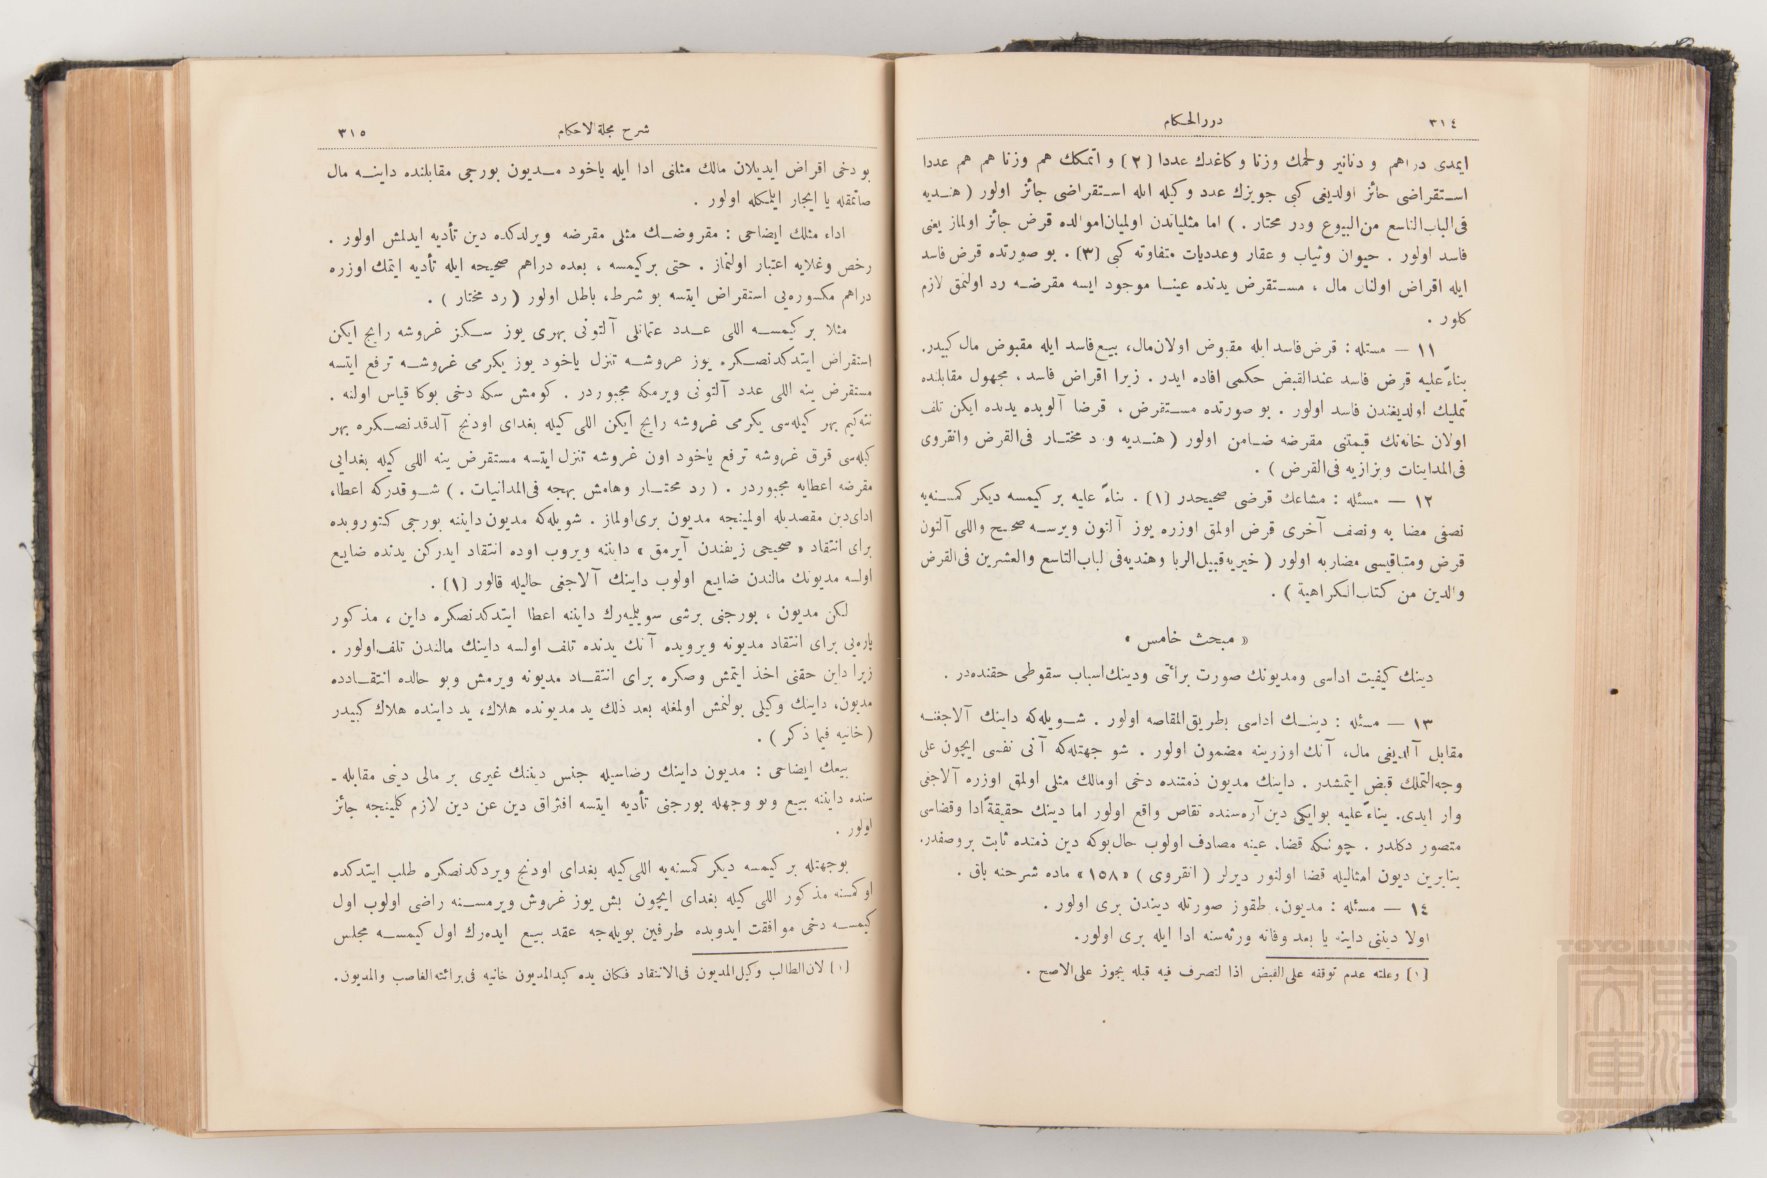 ٣١٤
دررالحكام
ايمدى دراهم و دنانير ولحمك وزنا وكاغدك عددا [٢] و اتمكك هم وزنا هم هم عددا
استقراضى جائز اولديغى كبى جويزك عدد وكيله ايله استقراضى جائز اولور ( هنديه
فى‌الباب‌التاسع من‌البيوع ودر مختار . ) اما مثلياتدن اولميان‌اموالده قرض جائز اولماز يعنى
فاسد اولور . حيوان وثياب و عقار وعدديات متفاوته كبى [٣] . بو صورتده قرض فاسد
ايله اقراض اولنان مال ، مستقرض يدنده عيناً موجود ايسه مقرضه رد اولنمق لازم
كلور .
١١ — مسئله : قرض‌فاسد ايله مقبوض اولان‌مال، بيع‌فاسد ايله مقبوض مال كبيدر.
بناءً‌عليه قرض فاسد عندالقبض حكمى افاده ايدر . زيرا اقراض فاسد ، مجهول مقابلنده
تمليك اولديغندن فاسد اولور . بو صورتده مستقرض ، قرضا آلوبده يدنده ايكن تلف
اولان خانه‌نك قيمتنى مقرضه ضامن اولور ( هنديه و د مختار فى‌القرض وانقروى
فى‌المداينات وبزازيه فى‌القرض ) .
١٢ — مسئله : مشاعك قرضى صحيحدر [١] . بناءً عليه بر كيمسه ديكر كمسنه‌يه
نصفى مضا به ونصف آخرى قرض اولمق اوزره يوز آلتون ويرسه صحيح واللى آلتون
قرض ومتباقيسى مضاربه اولور ( خيريه‌قبيل‌الربا وهنديه‌فى لباب‌التاسع والعشرين فى‌القرض
والدين من كتاب‌الكراهية ) .
« مبحث خامس »
دينك كيفيت اداسى ومديونك صورت برائتى ودينك‌اسباب سقوطى حقنده‌در .
١٣ — مسئله : دينك اداسى بطريق‌المقاصه اولور . شويله‌كه داينك آلاجغنه
مقابل آلديغى مال، آنك اوزرينه مضمون اولور . شو جهتله‌كه آنى نفسى ايچون على
وجه‌التملك قبض ايتمشدر . داينك مديون ذمتنده دخى اومالك مثلى اولمق اوزره آلاجغى
وار ايدى. بناءً‌عليه بوايكى دين آره‌سنده تقاص واقع اولور اما دينك حقيقةً‌ادا وقضاسى
متصور دكلدر . چونكه قضا، عينه مصادف اولوب حال‌بوكه دين ذمتده ثابت بروصفدر.
بنابرين ديون امثاليله قضا اولنور ديرلر ( انقروى ) «١٥٨» ماده شرحنه باق .
١٤ — مسئله : مديون، طقوز صورتله ديندن برى اولور .
اولا دينى داينه يا بعد وفاته ورثه‌سنه ادا ايله برى اولور.
[١] وعلته عدم توقفه على‌القبض اذا لتصرف فيه قبله يجوز على‌الاصح .
شرح مجلة‌الاحكام
٣١٥
بو دخى اقراض ايديلان مالك مثلنى ادا ايله ياخود مديون بورجى مقابلنده داينه مال
صاتمقله يا ايجار ايلمكله اولور .
اداء مثلك ايضاحى : مقروضك مثلى مقرضه ويرلدكده دين تأديه ايدلمش اولور .
رخص وغلايه اعتبار اولنماز . حتى بركيمسه ، بعده دراهم صحيحه ايله تأديه ايتمك اوزره
دراهم مكسوره‌يى استقراض ايتسه بو شرط، باطل اولور ( رد مختار ) .
مثلا بر كيمسه اللى عدد عثمانلى آلتونى بهرى يوز سكز غروشه رايج ايكن
استقراض ايتدكدنصكره يوز غروشه تنزل ياخود يوز يكرمى غروشه ترفع ايتسه
مستقرض ينه اللى عدد آلتونى ويرمكه مجبوردر . كومش سكه دخى بوكا قياس اولنه .
نته‌كيم بهر كيله‌سى يكرمى غروشه رايج ايكن اللى كيله بغداى اودنج آلدقدنصكره بهر
كيله‌سى قرق غروشه ترفع ياخود اون غروشه تنزل ايتسه مستقرض ينه اللى كيله بغدايى
مقرضه اعطايه مجبوردر . ( رد مختار وهامش بهجه فى‌المدانيات . ) شوقدركه اعطا،
اداى‌دين مقصديله اولمينجه مديون برى‌اولماز . شويله‌كه مديون داينه بورجى كتوروبده
براى انتقاد «صحيحى زيفندن آيرمق» داينه ويروب اوده انتقاد ايدركن يدنده ضايع
اولسه مديونك مالندن ضايع اولوب داينك آلاجغى حاليله قالور [١] .
لكن مديون ، بورجنى برشى سويلميه‌رك داينه اعطا ايتدكدنصكره داين ، مذكور
پاره‌يى براى انتقاد مديونه ويرويده آنك يدنده تلف اولسه داينك مالندن تلف‌اولور .
زيرا داين حقنى اخذ ايتمش وصكره براى انتقاد مديونه ويرمش وبو حالده انتقادده
مديون، داينك وكيلى بولنمش اولمغله بعد ذلك يد مديونده هلاك، يد داينده هلاك كبيدر
( خانيه فيما ذكر ) .
بيعك ايضاحى : مديون داينك رضاسيله جنس دينك غيرى بر مالى دينى مقابله -
سنده داينه بيع وبو وجهله بورجنى تأديه ايتسه افتراق دين عن دين لازم كلمينجه جائز
اولور .
بوجهتله بر كيمسه ديكر كمسنه‌يه اللى‌كيله بغداى اودنج ويردكدنصكره طلب ايتدكده
او كمسنه مذكور اللى كيله بغداى ايچون بش يوز غروش ويرمسنه راضى اولوب اول
كيمسه دخى موافقت ايدوبده طرفين بويله‌جه عقد بيع ايده‌رك اول كيمسه مجلس
[١] لان‌الطالب وكيل‌المديون فى‌الانتقاد فكان يده كيدالمديون خانيه فى‌برائته‌الغاصب والمديون.
TOYO BUNKO